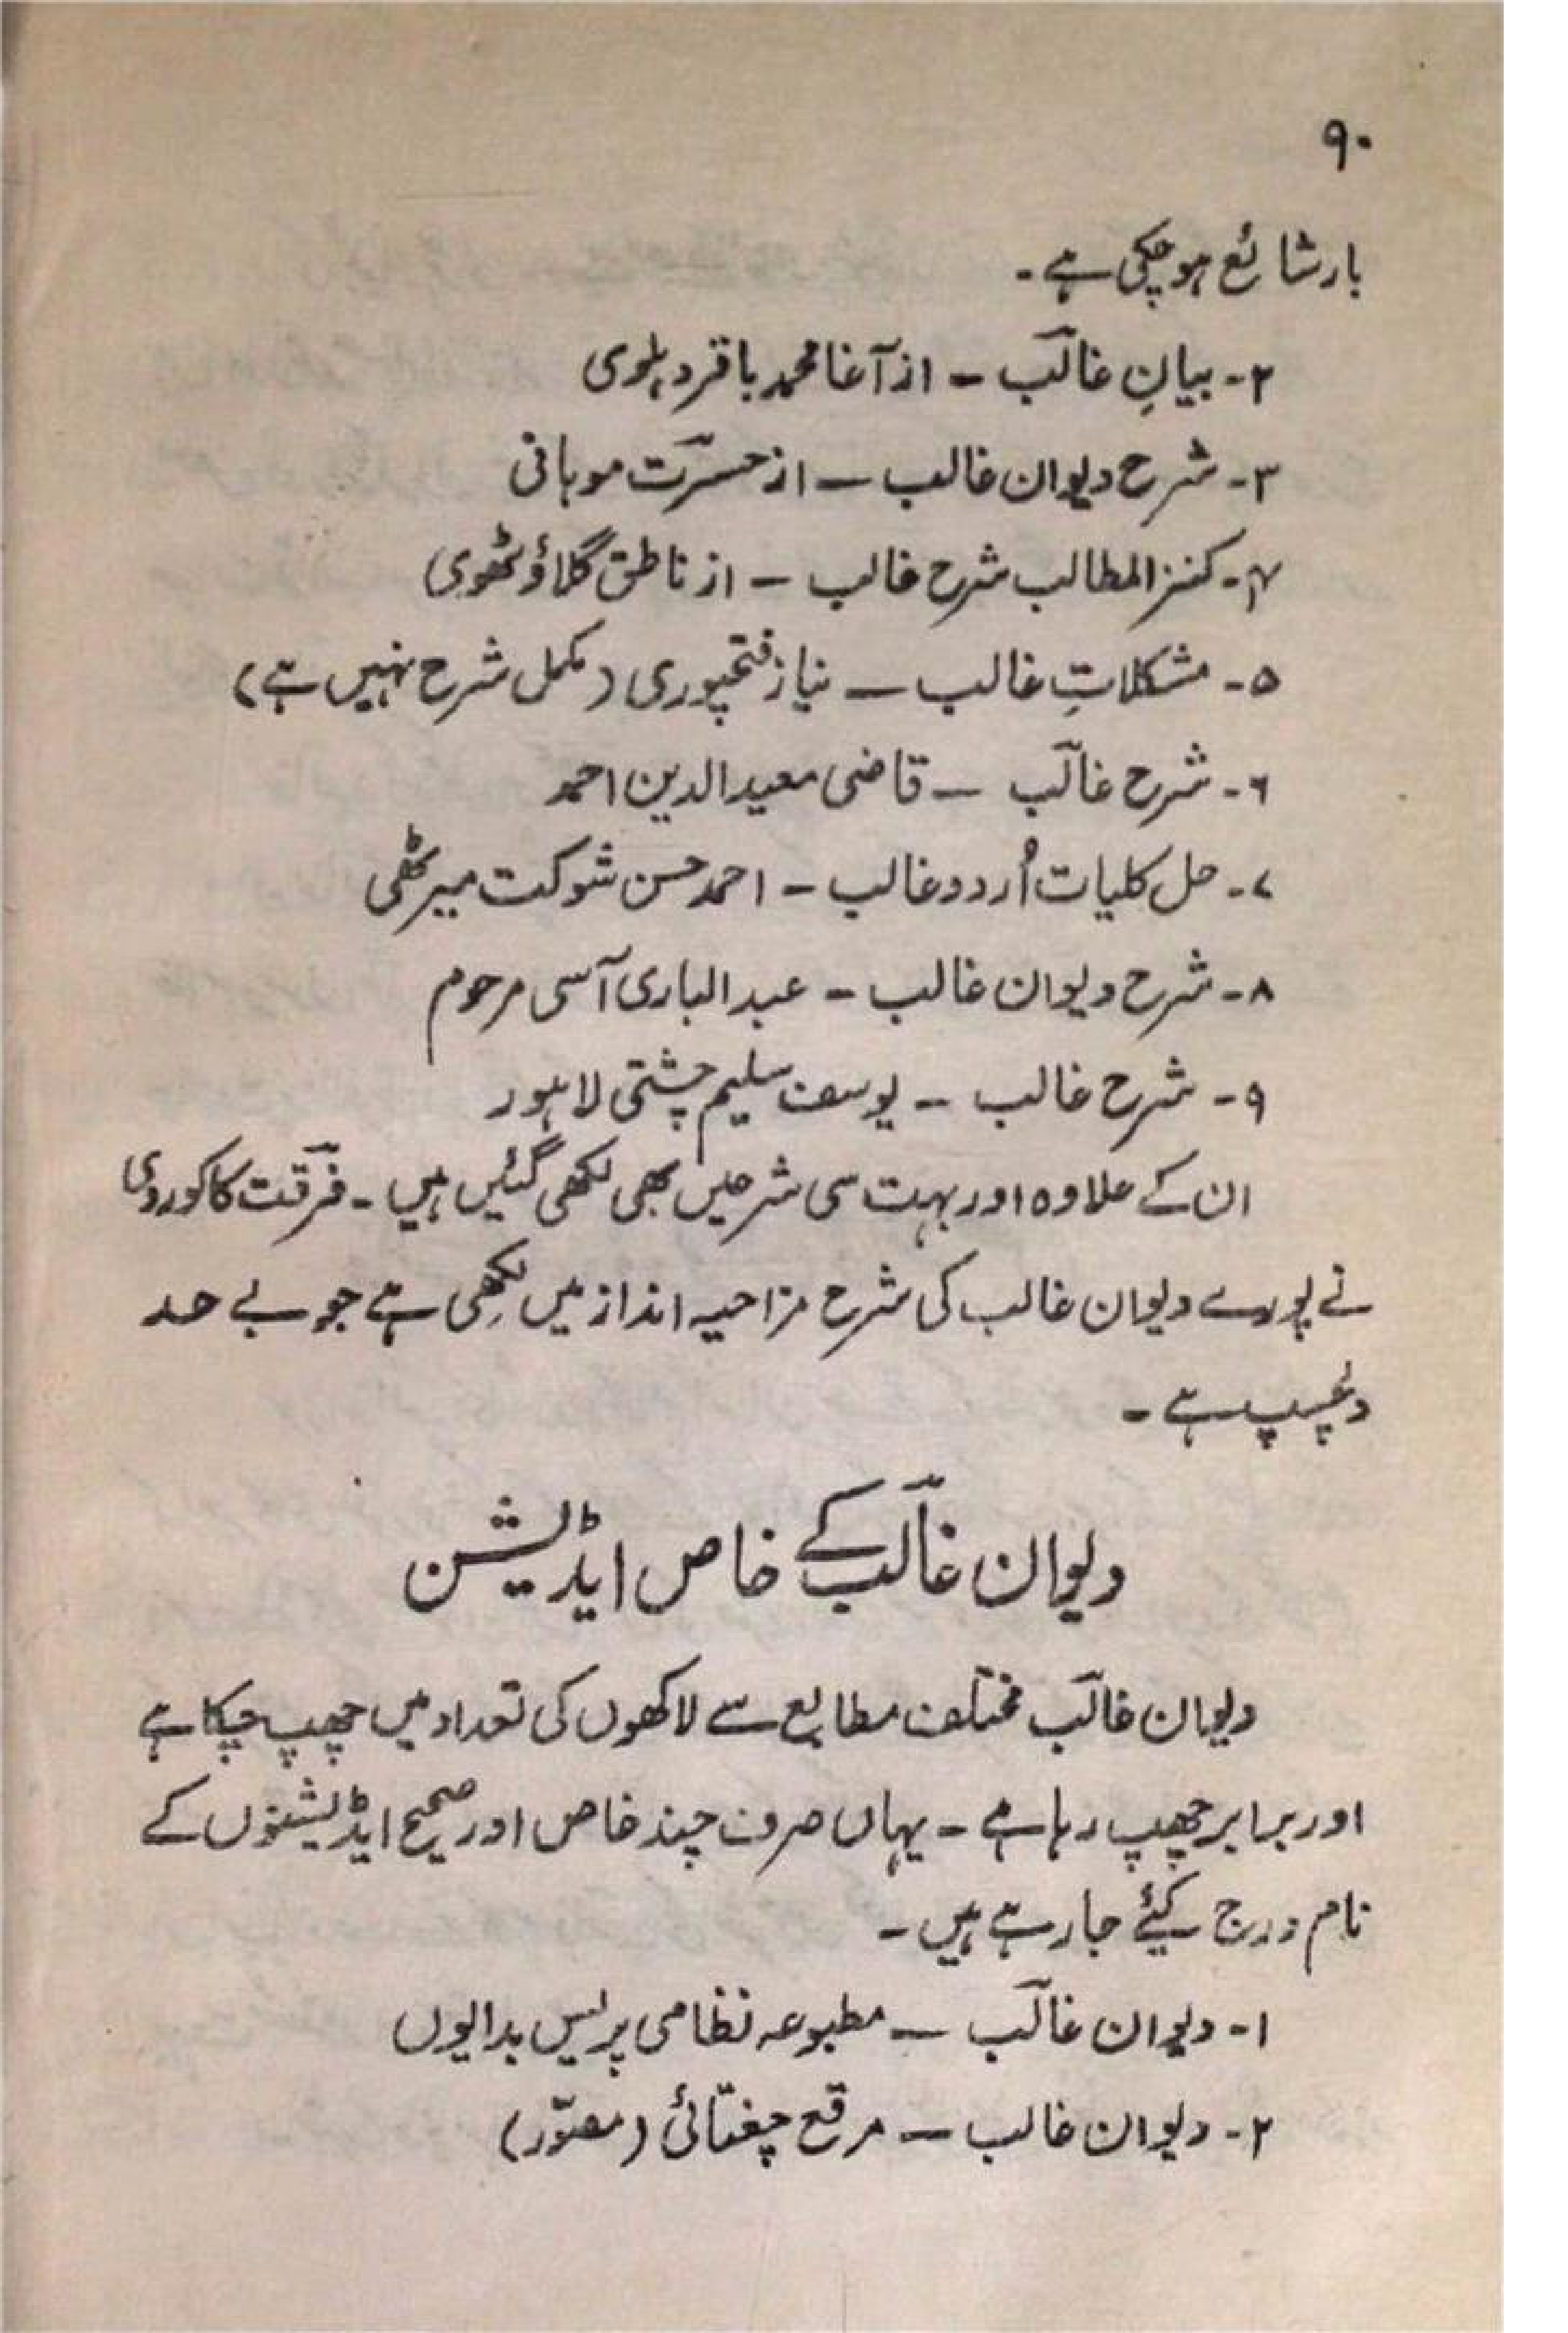 ۹۰
بار شائع ہو چکی ہے۔
۲۔ بیانِ غالؔب ــ از آغا محمد باقر دہلوی
۳۔ شرح دیوان غالب ــ از حسرؔت موہانی
۴۔ کنز المطالب شرح غالب ــ از ناطق گلاؤٹھوی
۵۔ مشکلاتِ غالب ــ نیاز فتحپوری (مکمل شرح نہیں ہے)
۶۔ شرح غالؔب ــ قاضی معید الدین احمد
۷۔ حل کلیات اُردو غالب ــ احمد حسن شوکت میرٹھی
۸۔ شرح دیوان غالب ــ عبدالباری آسی مرحوم
۹۔ شرح غالب ــ یوسف سلیم چشتی لاہور
ان کے علاوہ اور بہت سی شرحیں بھی لکھی گئیں ہیں۔ فرقؔت کاکوروی
نے پورے دیوان غالب کی شرح مزاحیہ انداز میں لکھی ہے جو بے حد
دلچسپ ہے۔
دیوان غالؔب کے خاص ایڈیشن
دیوان غالؔب مختلف مطابع سے لاکھوں کی تعداد میں چھپ چکا ہے
اور برابر چھپ رہا ہے۔ یہاں صرف چند خاص اور صحیح ایڈیشنوں کے
نام درج کیئے جا رہے ہیں۔
۱۔ دیوان غالؔب ــ مطبوعہ نظامی پریس بدایوں
۲۔ دیوان غالب ــ مرقع چغتائی (مصوّر)